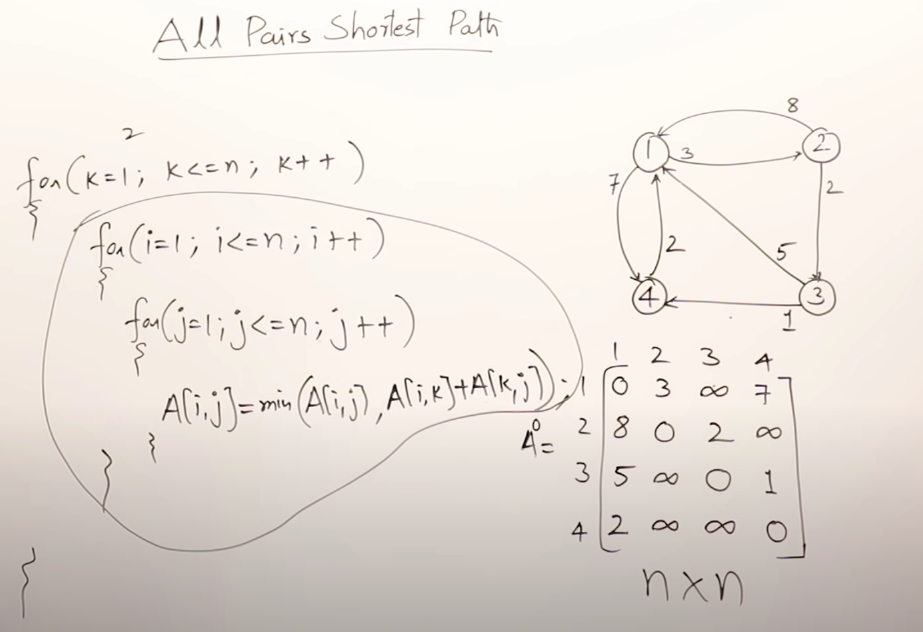 All Pairs Shortest Path
2
for(k=1; k<=n; k++)
{
for(i=1; i<=n; i++)
{
for(j=1; j<=n; j++)
{
A[i,j]=min(A[i,j], A[i,k]+A[k,j]);
}
}
}
8
1 3 2
7 2 5 2
4 1 3
1 2 3 4
1 0 3 ∞ 7
A⁰= 2 8 0 2 ∞
3 5 ∞ 0 1
4 2 ∞ ∞ 0
n×n